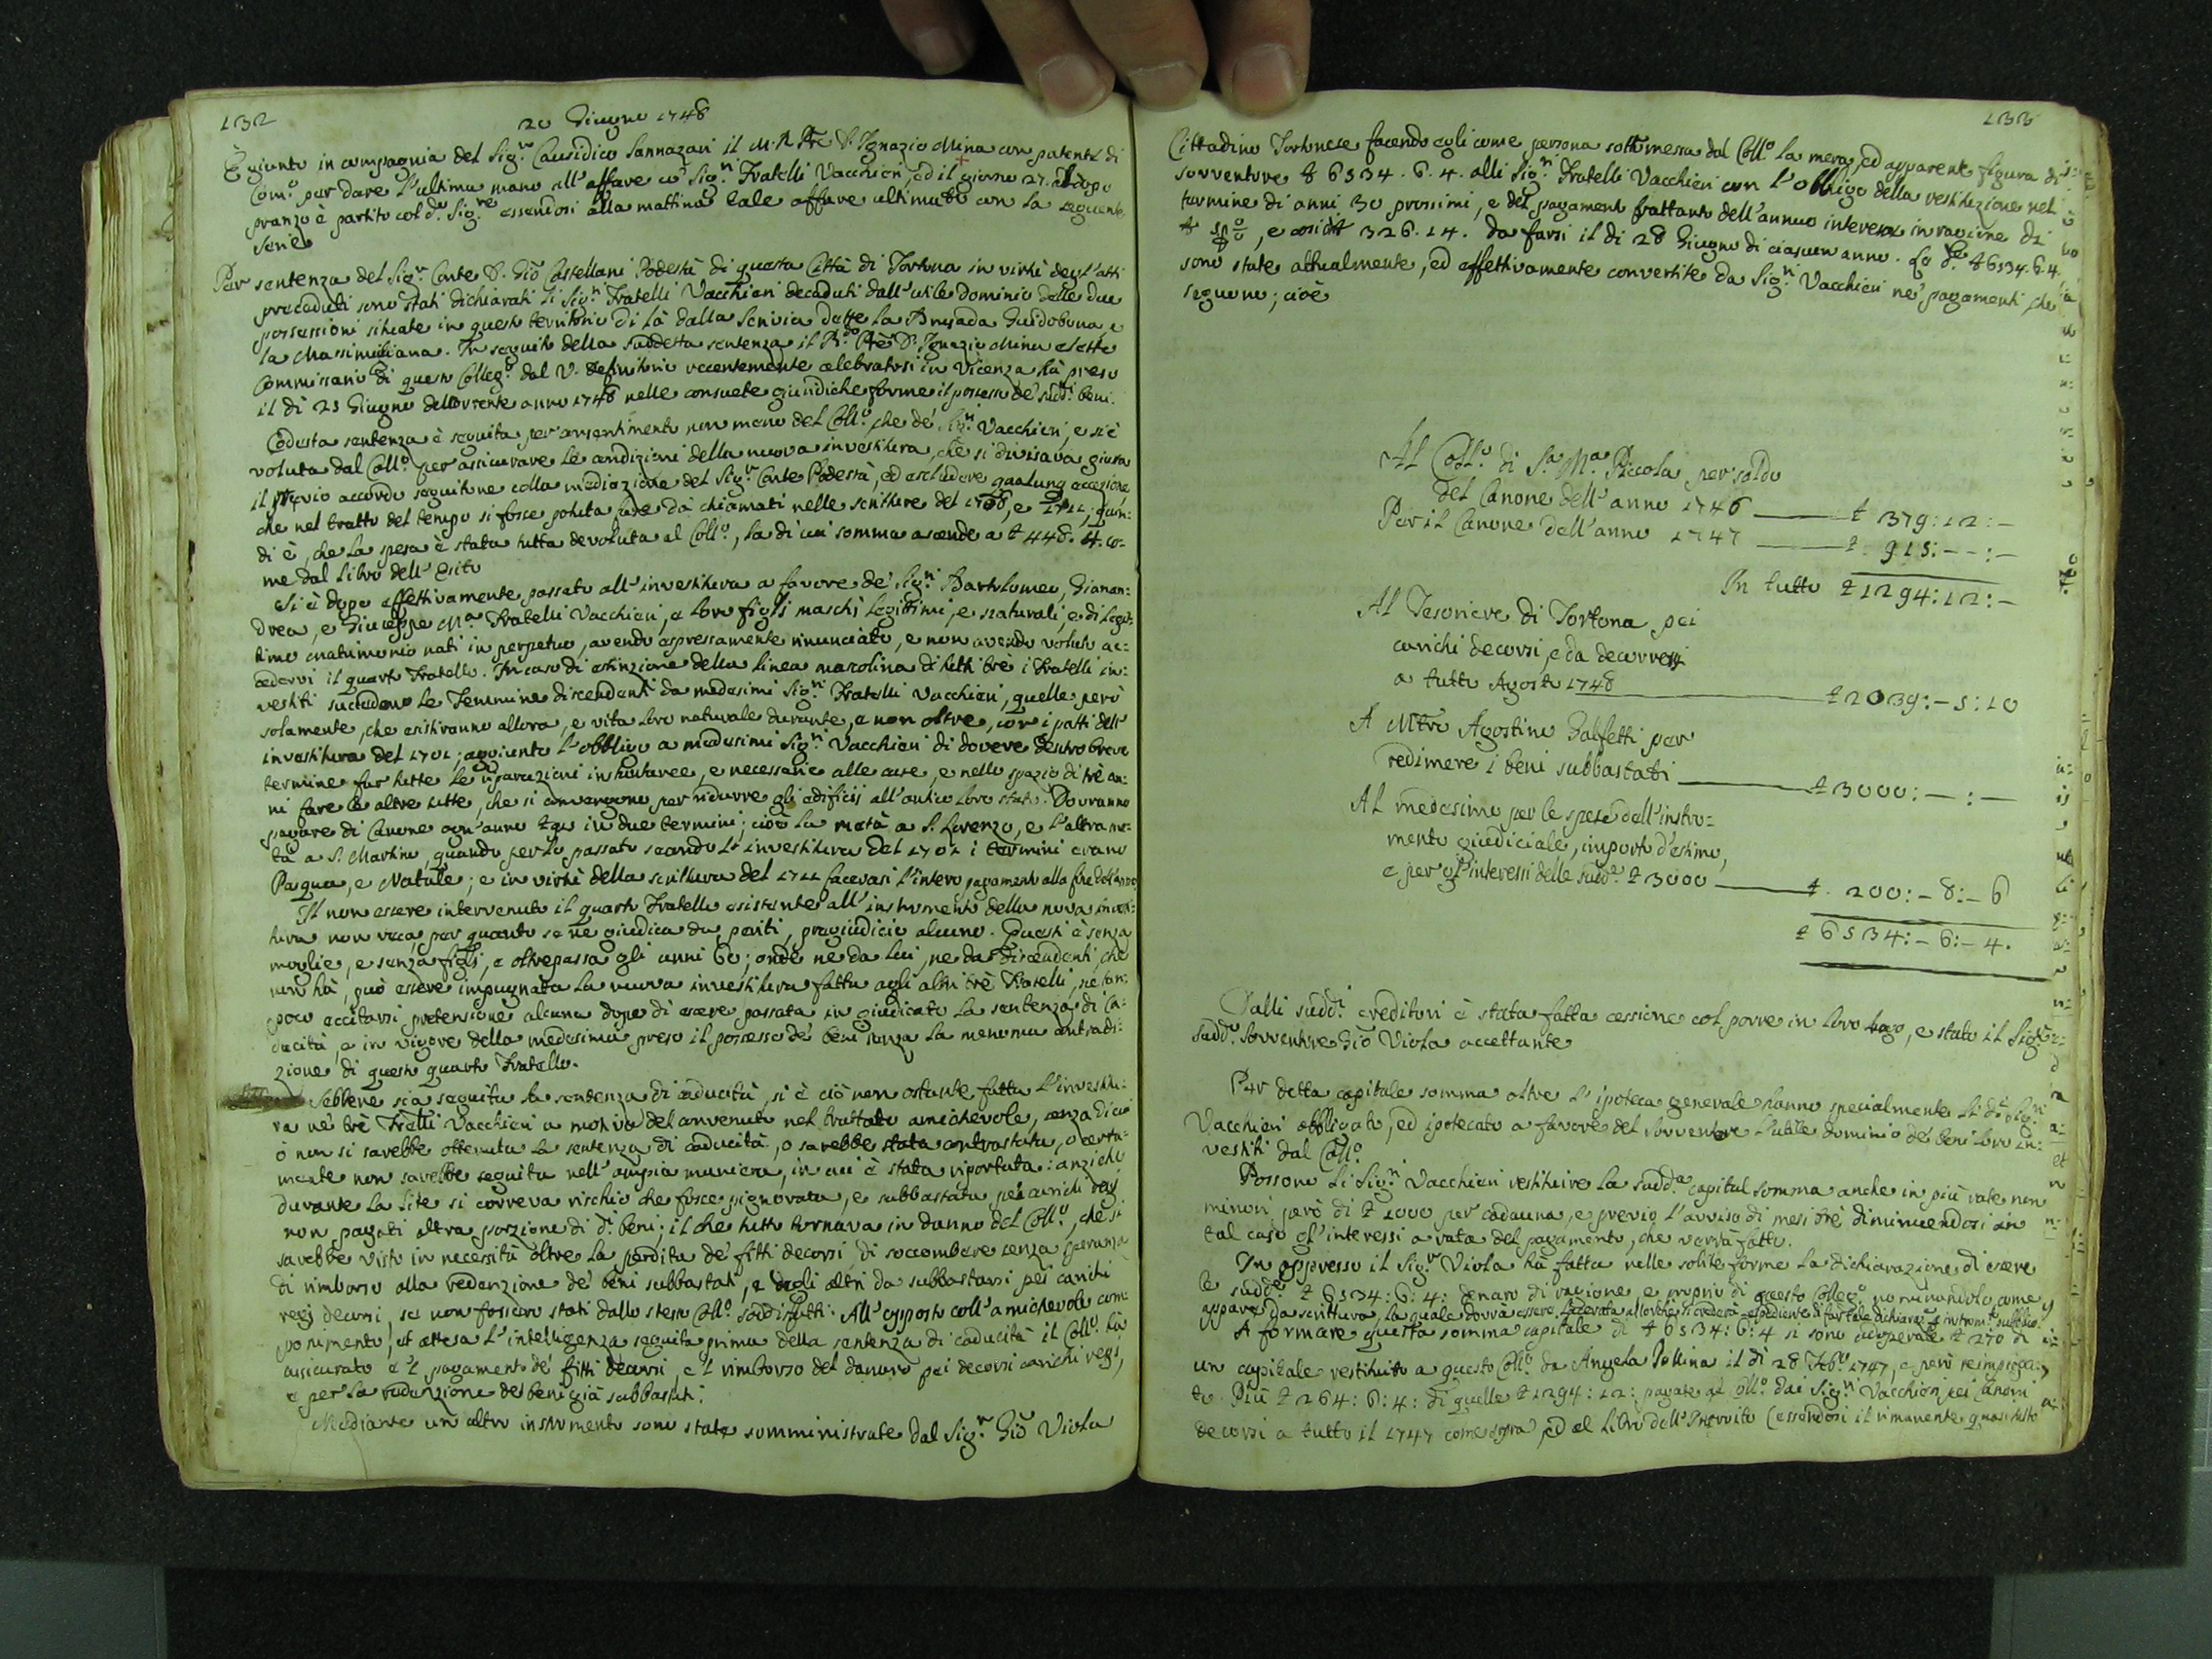 132
20 Giugno 1748
È giunto in compagnia del Sig.r Causidico Sannazari il M.R.Pre D. Ignazio Mina con patente di
Com.o per dare l'ultima mano all'affare co' Sig.ri Fratelli Vacchieri, ed il giorno 27. dopo
pranzo è partito col d.o Sig.re essendosi alla mattina tale affare ultimato con la seguente
serie
Per sentenza del Sig.r Conte D. Giō Castellani Podestà di questa Città di Tortona in virtù degl'atti
preceduti sono stati dichiarati li Sig.ri Fratelli Vacchieri decaduti dall'utile dominio delle due
possessioni situate in questo territorio di là dalla Scrivia dette la Brusada Guidobona, e
la Massimiliana. In seguito della suddetta sentenza il R.do Pre D. Ignazio Mina eletto
Commissario di questo Colleg.o dal V. Definitorio recentemente celebratosi in Vicenza hà preso
il dì 23 Giugno del corrente anno 1748 nelle consuete giuridiche forme il possesso de' sud.i beni.
Codesta sentenza è seguita per consentimento non meno del Coll.o che de' Sig.ri Vacchieri, e si è
voluta dal Coll.o per assicurare le condizioni della nuova investitura, che si divisava giusta
il previo accordo seguitone colla mediazione del Sig.r Conte Podestà, ed escludere qualunq eccezione
che nel tratto del tempo si fosse potuta fare da chiamati nelle scritture del e 1722, quin:
di è, che la spesa è stata tutta devoluta al Coll.o, la di cui somma ascende a ł 448. 4. co-
me dal Libro dell'Esito
Si è dopo effettivamente passato all'investitura a favore de' Sig.ri Bartolomeo, Gianan:
drea, e Giuseppe M.a Fratelli Vacchieri, e loro figli maschj legittimi, e naturali, e di legit:
timo matrimonio nati in perpetuo, avendo espressamente rinunciato, e non avendo voluto ac:
cedervi il quarto Fratello. In caso di estinzione della linea mascolina di tutti trè i Fratelli in:
vestiti succedono le Femmine discendenti da medesimi Sig.ri Fratelli Vacchieri, quelle però
solamente, che esisteranno allora, e vita loro naturale durante, e non oltre, con i patti dell'
investitura del 1702; aggiunto l'obbligo a medesimi Sig.ri Vacchieri di dovere dentro breve
termine far tutte le riparazioni instantanee, e necessarie alle case, e nello spazio di trè an:
ni fare le altre tutte, che si convengono per ridurre gli edificij all'antico loro stato. Dovranno
pagare di Canone ogn'anno ł 915 in due termini; cioè la metà a S. Lorenzo, e l'altra me:
tà a S. Martino, quando per lo passato secondo l'investitura del 1702 i termini erano
Pasqua, e Natale; e in virtù della scrittura del 1722 facevasi l'intero pagamento alla fine dell'anno
Il non essere intervenuto il quarto Fratello esistente all'instrumento della nuova investi:
tura non reca, per quanto se ne giudica da periti, pregiudicio alcuno. Questi è senza
moglie, e senza figli, e oltrepassa gli anni 60; onde ne da lui, ne da Discendenti, che
non hà, può essere impugnata la nuova investitura fatta agli altri trè Fratelli, ne tan:
poco eccitarsi pretensione alcuna dopo di essere passata in giudicato la sentenza di Ca:
ducità, e in vigore della medesima preso il possesso de' beni senza la menoma contradi:
zione di questo quarto Fratello.
Sebbene sia seguita la sentenza di caducità, si è ciò non ostante fatta l'investitu:
ra nè trè Fratelli Vacchieri a motivo del convenuto nel trattato amichevole, senza di cui
ò non si sarebbe ottenuta la sentenza di caducità, o sarebbe stata contrastata, o certa:
mente non sarebbe seguita nell'ampia maniera, in cui è stata riportata: anziche
durante la lite si correva rischio che fosse pignorata, e subbastata pei carichi regj
non pagati altra porzione di d.i beni; il che tutto tornava in danno del Coll.o, che si
sarebbe visto in necessità oltre la perdita de' fitti decorsi di soccombere senza speranza
di rimborso alla redenzione de' beni subbastati, e degli altri da subbastarsi pei carichi
regj decorsi, se non fossero stati dallo stesso Coll.o soddisfatti. All'opposto coll'amichevole com:
ponimento, ed attesa l'intelligenza seguita prima della sentenza di caducità il Coll.o hà
assicurato e 'l pagamento de' fitti decorsi, e 'l rimborso del danaro pei decorsi carichi regj,
e per la redenzione de' beni già subbastati.
Mediante un altro instrumento sono state somministrate dal Sig.r Giō Viola
133
Cittadino Tortonese facendo egli come persona sottomessa dal Coll.o la mera, ed apparente figura di
sovventore ł 6534. 6. 4. alli Sig.ri Fratelli Vacchieri con l'obbligo della restituzione nel
termine di anni 30 prossimi, e del pagamento frattanto dell'annuo interesse in ragione di
ł 5 p o/o, e così di ł 326. 14. da farsi il di 28 Giugno di ciascun anno. Le d.e ł 6534. 6. 4
sono state attualmente, ed effettivamente convertite da Sig.ri Vacchieri ne' pagamenti, che
seguono; cioè
Al Coll.o di S.a M.a Piccola per saldo
del Canone dell'anno 1746 ——— ł 379:12:—
Per il Canone dell'anno 1747 ——— ł. 915:—:—
In tutto ł 1294:12:—
Al Tesoriere di Tortona pei
carichi decorsi, e da decorrersi
a tutto Agosto 1748 ——— ł 2039:—5:10
A Mtro Agostino Galfetti per
redimere i beni subbastati ——— ł 3000:—:—
Al medesimo per le spese dell'instro=
mento giudiciale, importo d'estimo,
e per gl'interessi delle sudd.e ł 3000 ——— ł. 200:—8:—6
ł 6534:—6:—4.
Dalli sudd.i creditori è stata fatta cessione col porre in loro luogo, e stato il Sig.r
sudd.o Sovventore Giō Viola accettante
Per detta capitale somma oltre l'ipoteca generale hanno specialmente li d.i Sig.ri
Vacchieri obbligato, ed ipotecato a favore del sovventore l'utile dominio de' beni loro in:
vestiti dal Coll.o
Possono li Sig.ri Vacchieri restituire la sudd.a capital somma anche in più rate non
minori però di ł 1000 per cadauna, e previo l'avviso di mesi trè diminuendosi in
tal caso gl'interessi a rata del pagamento, che verrà fatto.
In appresso il Sig.r Viola hà fatta nelle solite forme la dichiarazione di essere
le sudd.e ł 6534:6:4: denaro di ragione, e proprio di questo Colleg.o nominandolo, come
appare da scrittura, la quale dovrà essere lacerata allorchè si crederà espediente di far tale dichiaraz.e p instrom.to pubblico.
A formare questa somma capitale di ł 6534:6:4 si sono adoperate ł 270 di
un capitale restituito a questo Coll.o da Angela Pollina il di 28 Feb.o 1747, e però reimpiega:
to. Più ł 264:6:4: di quelle ł 1294:12: pagate al Coll.o dai Sig.ri Vacchieri pei Canoni
decorsi a tutto il 1747 come sopra, ed al Libro dell'Introito (essendosi il rimanente quasi tutto